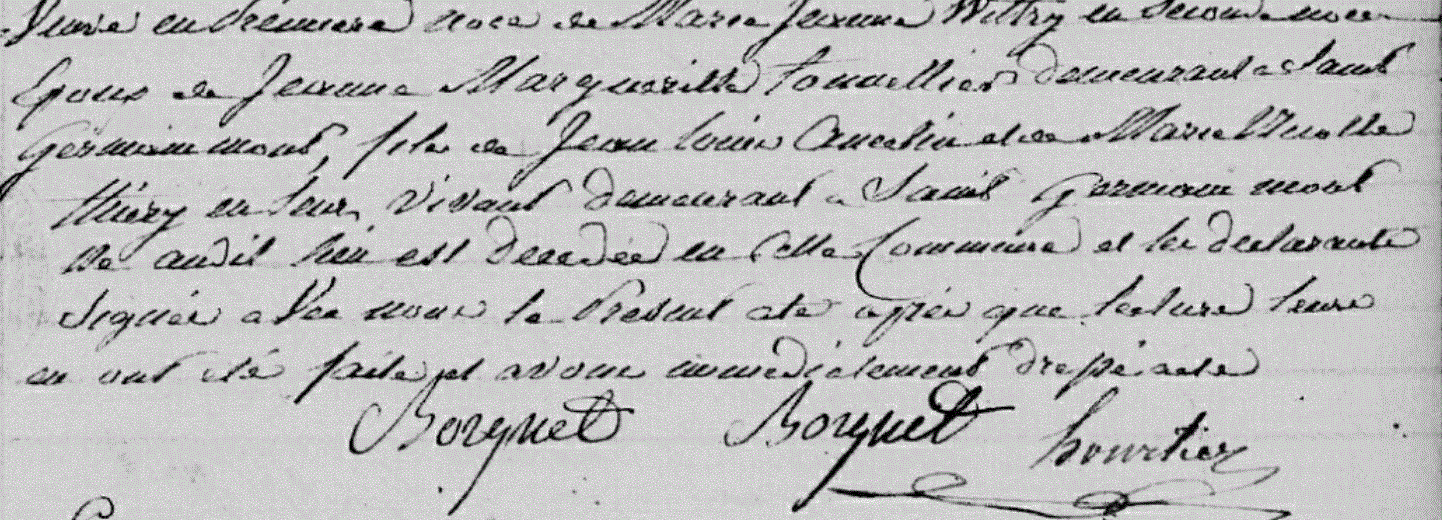 veuve en premiere noce de Marie Jeanne Wittry en seconde noce
Epoux de Jeanne Margueritte tonnellier demeurant a Saint
Germainmont, fils de Jean louis Ancelin et de Marie Nicolle
thiery en leur vivant demeurant a Saint Germainmont
né audit lieu est decedée en Cette Commune et les declarants
Signée avec nous le Present acte après que lecture leure
en ont été faite et avons immediatement drepé acte
Borgnet Borgnet hourtier